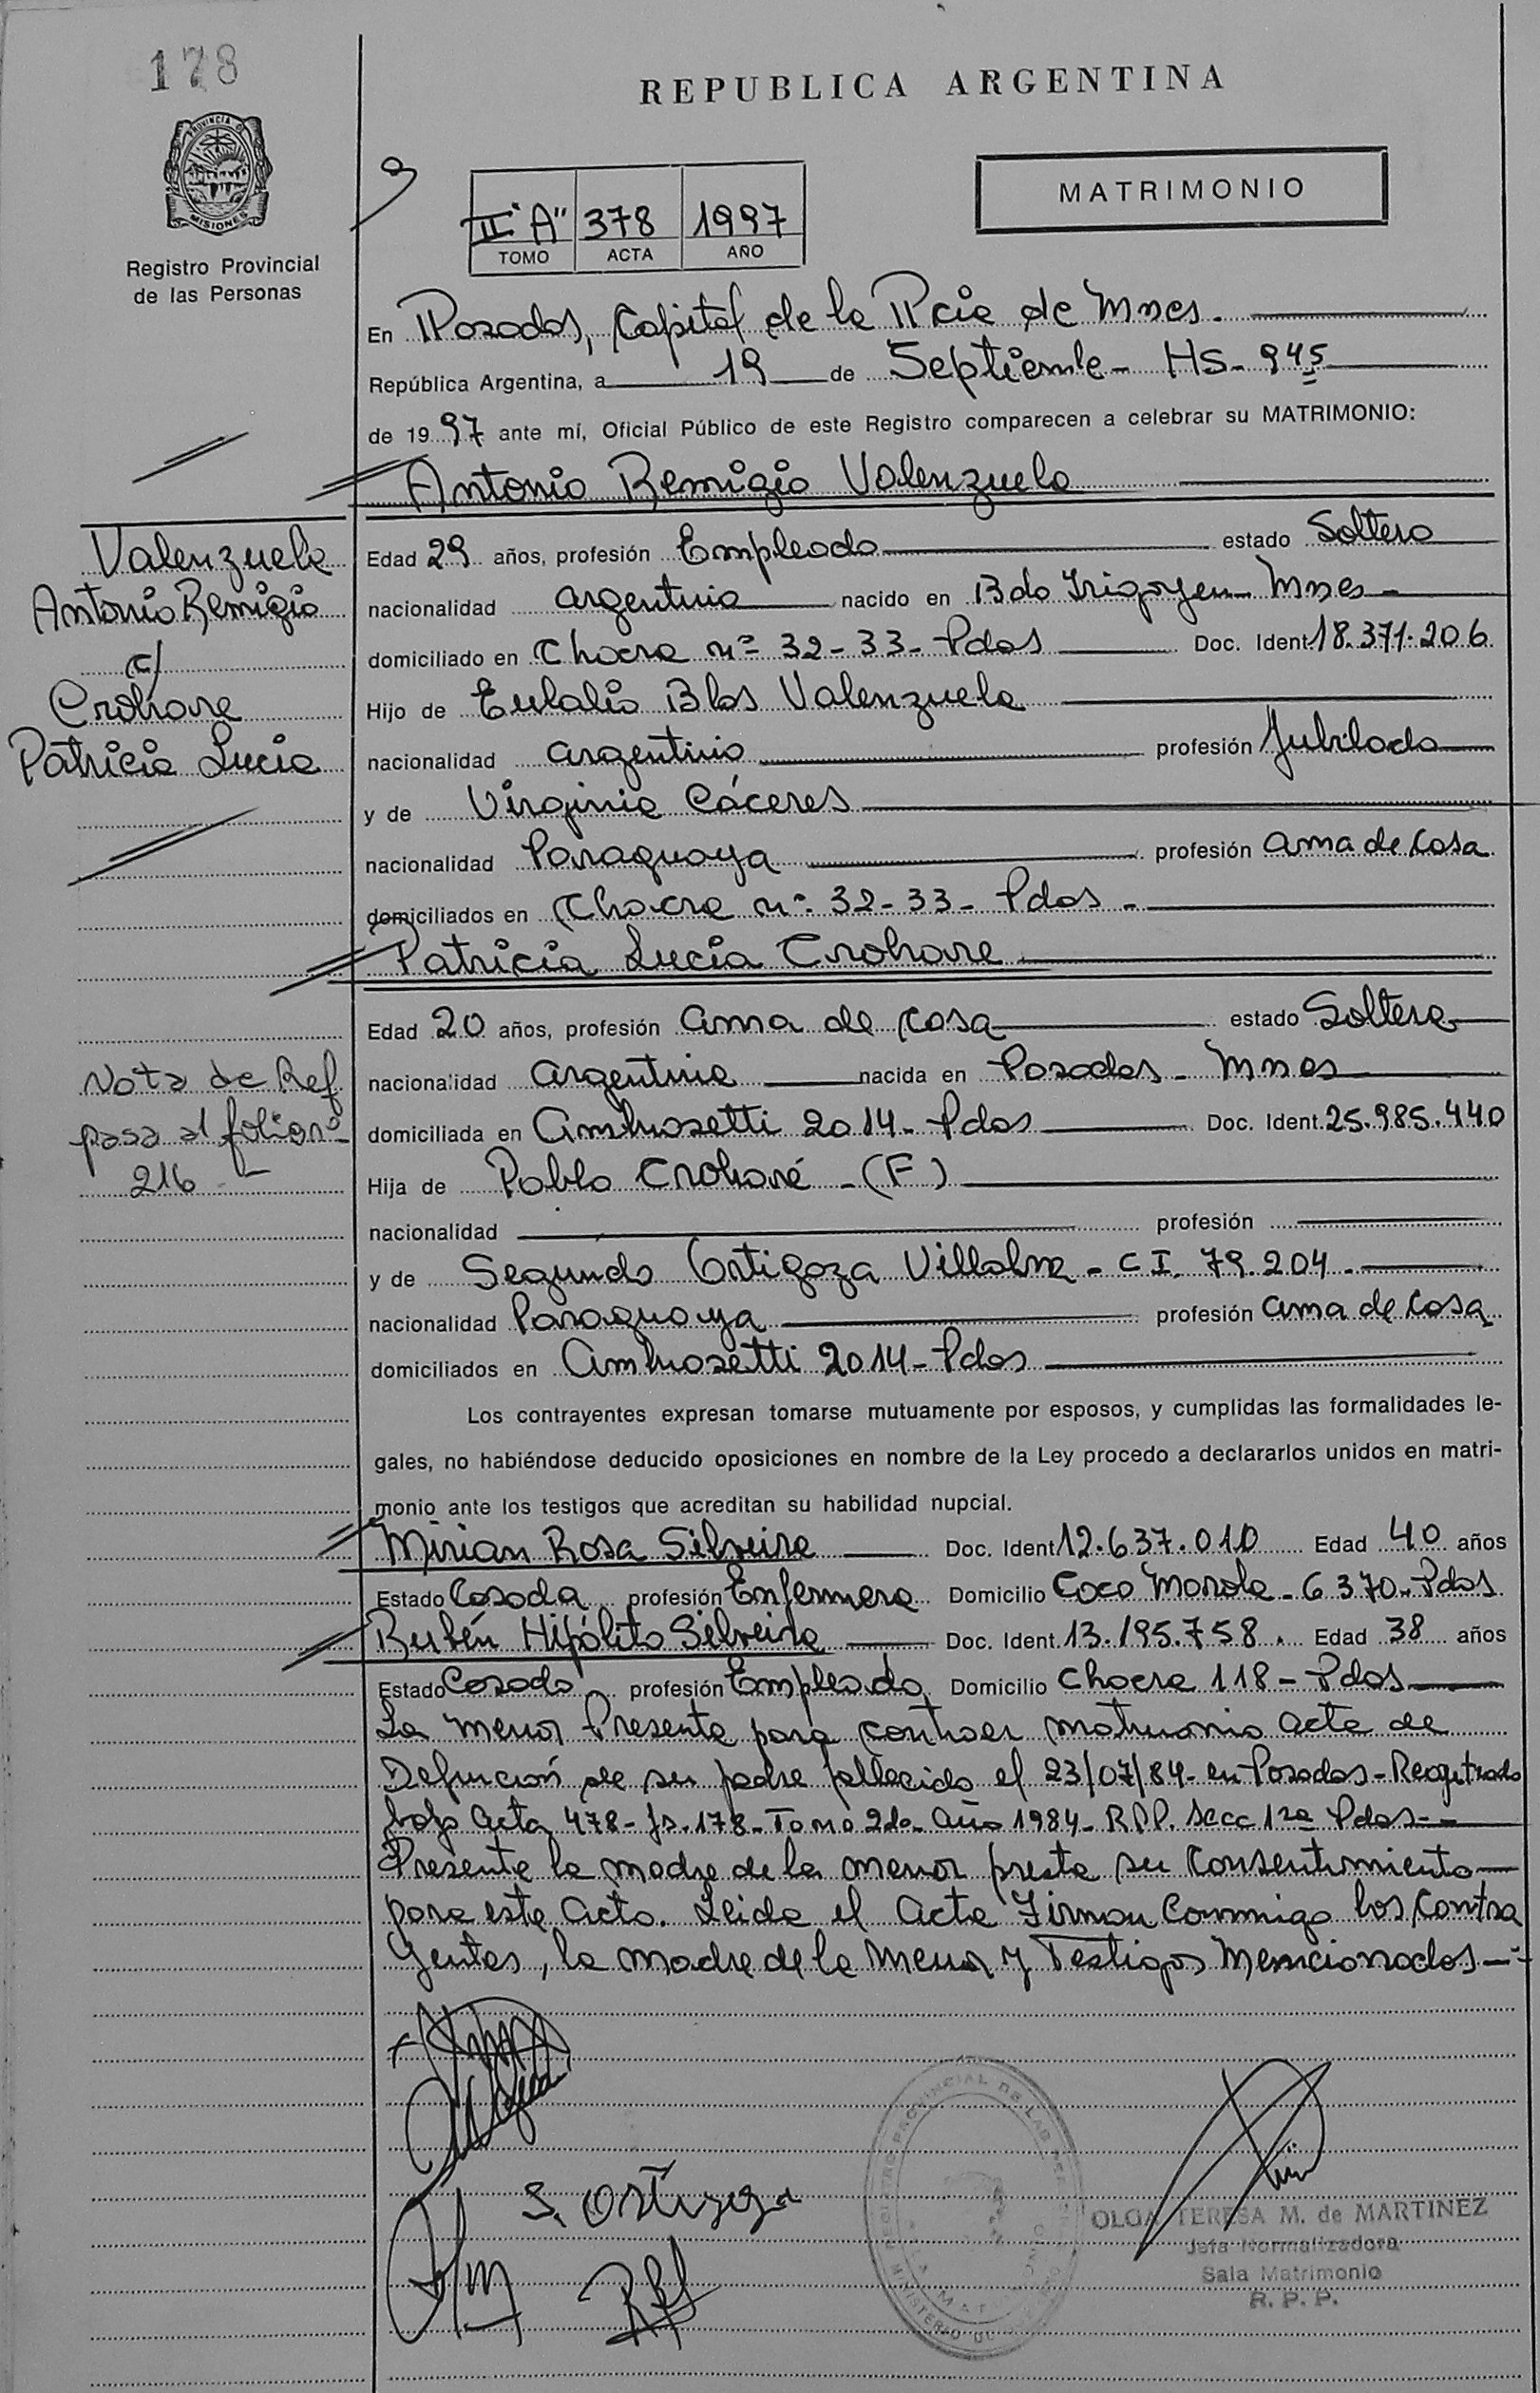 178
REPUBLICA ARGENTINA
PROVINCIA D
MISIONES
Registro Provincial
de las Personas
MATRIMONIO
II "A" 378 1997
TOMO ACTA AÑO
En Posadas, Capital de la Pcia de Mnes.
República Argentina, a 19 de Septiembre - HS - 945
de 1997 ante mí, Oficial Público de este Registro comparecen a celebrar su MATRIMONIO:
Antonio Remigio Valenzuela
Valenzuela
Antonio Remigio
c/
Crohare
Patricia Lucia
Edad 29 años, profesión Empleado estado Soltero
nacionalidad argentino nacido en Bdo Irigoyen - Mnes -
domiciliado en Chacra nº 32-33 - Pdas Doc. Ident. 18.371.206
Hijo de Eulalio Blas Valenzuela
nacionalidad argentino profesión Jubilado
y de Virginia Cáceres
nacionalidad Paraguaya profesión ama de casa
domiciliados en Chacra nº 32-33 - Pdas -
Patricia Lucia Crohare
Edad 20 años, profesión ama de casa estado Soltera
nacionalidad argentina nacida en Posadas - Mnes
domiciliada en Ambrosetti 2014 - Pdas Doc. Ident. 25.985.440
Nota de Ref
pasa al folio nº
216 -
Hija de Pablo Crohare - (F)
nacionalidad profesión
y de Segunda Ortigoza Villalba - C I. 79.204 -
nacionalidad Paraguaya profesión ama de casa
domiciliados en Ambrosetti 2014 - Pdas
Los contrayentes expresan tomarse mutuamente por esposos, y cumplidas las formalidades le-
gales, no habiéndose deducido oposiciones en nombre de la Ley procedo a declararlos unidos en matri-
monio ante los testigos que acreditan su habilidad nupcial.
Mirian Rosa Silveira Doc. Ident 12.637.010 Edad 40 años
Estado Casada profesión Enfermera Domicilio Coco Marola - 6370 - Pdas
Rubén Hipólito Silveira Doc. Ident. 13.195.758. Edad 38 años
Estado Casado profesión Empleado Domicilio Chacra 118 - Pdas
La menor Presenta para contraer matrimonio acta de
Defunción de su padre fallecido el 23/07/84 - en Posadas - Registrado
bajo Acta 478 - fs. 178 - Tomo 2do - Año 1984 - RPP. Secc 1ra Pdas -
Presente la madre de la menor presta su Consentimiento
para este Acto. Leida el Acta Firman Conmigo los Contra
yentes, la madre de la Menor y Testigos Mencionados -
S. Ortigoza
OLGA TERESA M. de MARTINEZ
Jefa Normalizadora
Sala Matrimonio
R. P. P.